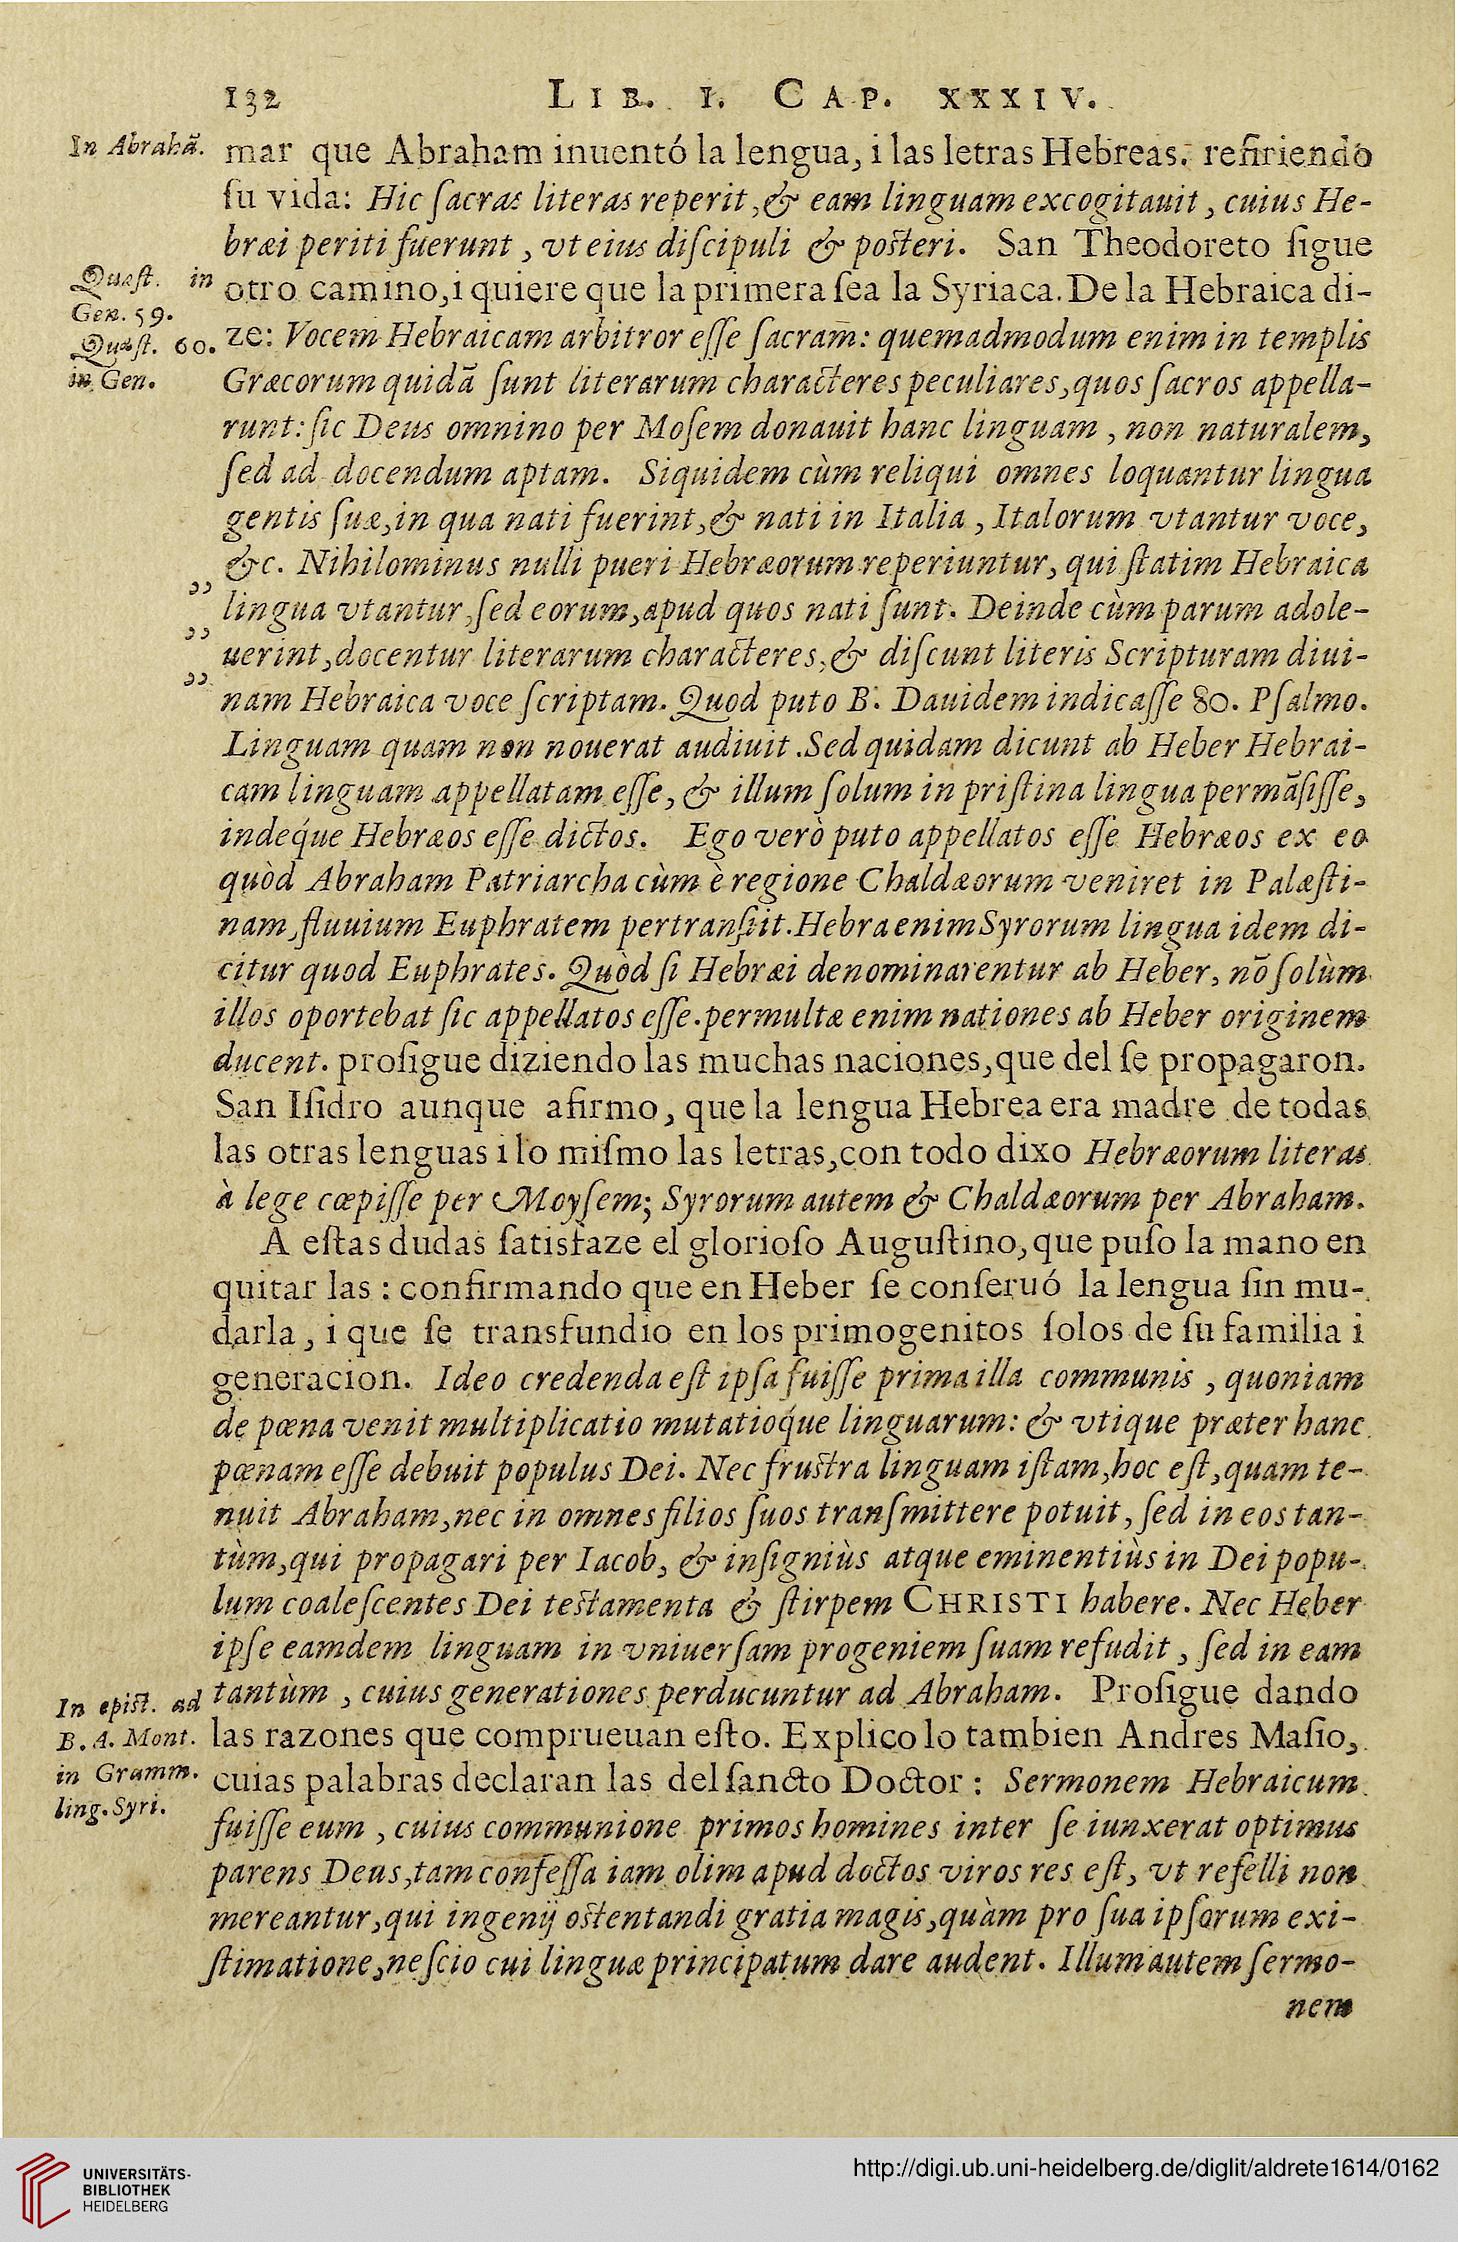 132 LIB. I. CAP. XXXIV.
In Abrahã.
mar que Abraham inuentó la lengua, i las letras Hebreas. refiriendo
ſu vida: Hic ſacras literas reperit, & eam linguam excogitauit, cuius He-
bræi periti fuerunt, vt eius diſcipuli & poſteri. San Theodoreto ſigue
Quæſt. in
Gen. 59.
Quæſt. 60.
in Gen.
otro camino, i quiere que la primera ſea la Syriaca. De la Hebraica di-
ze: Vocem Hebraicam arbitror eſſe ſacram: quemadmodum enim in templis
Græcorum quidã ſunt literarum characteres peculiares, quos ſacros appella-
runt: ſic Deus omnino per Moſem donauit hanc linguam, non naturalem,
ſed ad docendum aptam. Siquidem cùm reliqui omnes loquantur lingua
gentis ſuæ, in qua nati fuerint, & nati in Italia, Italorum vtantur voce,
&c. Nihilominus nulli pueri Hebræorum reperiuntur, qui ſtatim Hebraica
,, lingua vtantur, ſed eorum, apud quos nati ſunt. Deinde cùm parum adole-
,, uerint, docentur literarum characteres, & diſcunt literis Scripturam diui-
,, nam Hebraica voce ſcriptam. Quod puto B. Dauidem indicaſſe 80. Pſalmo.
Linguam quam non nouerat audiuit. Sed quidam dicunt ab Heber Hebrai-
cam linguam appellatam eſſe, & illum ſolum in priſtina lingua permãſiſſe,
indeq́ue Hebræos eſſe dictos. Ego verò puto appellatos eſſe Hebræos ex eo
quòd Abraham Patriarcha cùm è regione Chaldæorum veniret in Palæſti-
nam, fluuium Euphratem pertranſiit. Hebra enim Syrorum lingua idem di-
citur quod Euphrates. Quòd ſi Hebræi denominarentur ab Heber, nõ ſolùm
illos oportebat ſic appellatos eſſe. permultæ enim nationes ab Heber originem
ducent. proſigue diziendo las muchas naciones, que del ſe propagaron.
San Iſidro aunque afirmo, que la lengua Hebrea era madre de todas
las otras lenguas i lo miſmo las letras, con todo dixo Hebræorum literas
à lege cœpiſſe per Moyſem; Syrorum autem & Chaldæorum per Abraham.
A eſtas dudas ſatisfaze el glorioſo Auguſtino, que puſo la mano en
quitar las: confirmando que en Heber ſe conſeruó la lengua ſin mu-
darla, i que ſe transfundio en los primogenitos ſolos de ſu familia i
generacion. Ideo credenda eſt ipſa fuiſſe prima illa communis, quoniam
de pœna venit multiplicatio mutatioq́ue linguarum: & vtique præter hanc
pœnam eſſe debuit populus Dei. Nec fruſtra linguam iſtam, hoc eſt, quam te-
nuit Abraham, nec in omnes filios ſuos tranſmittere potuit, ſed in eos tan-
tùm, qui propagari per Iacob, & inſigniùs atque eminentiùs in Dei popu-
lum coaleſcentes Dei teſtamenta & ſtirpem CHRISTI habere. Nec Heber
ipſe eamdem linguam in vniuerſam progeniem ſuam refudit, ſed in eam
tantùm, cuius generationes perducuntur ad Abraham. Proſigue dando
In epiſt. ad
B. A. Mont.
in Gramm.
ling. Syri.
las razones que comprueuan eſto. Explico lo tambien Andres Maſio,
cuias palabras declaran las del ſancto Doctor: Sermonem Hebraicum
fuiſſe eum, cuius communione primos homines inter ſe iunxerat optimus
parens Deus, tam confeſſa iam olim apud doctos viros res eſt, vt refelli non
mereantur, qui ingenij oſtentandi gratia magis, quàm pro ſua ipſorum exi-
ſtimatione, neſcio cui linguæ principatum dare audent. Illum autem ſermo-
nem
UNIVERSITÄTS-
BIBLIOTHEK
HEIDELBERG
http://digi.ub.uni-heidelberg.de/diglit/aldrete1614/0162